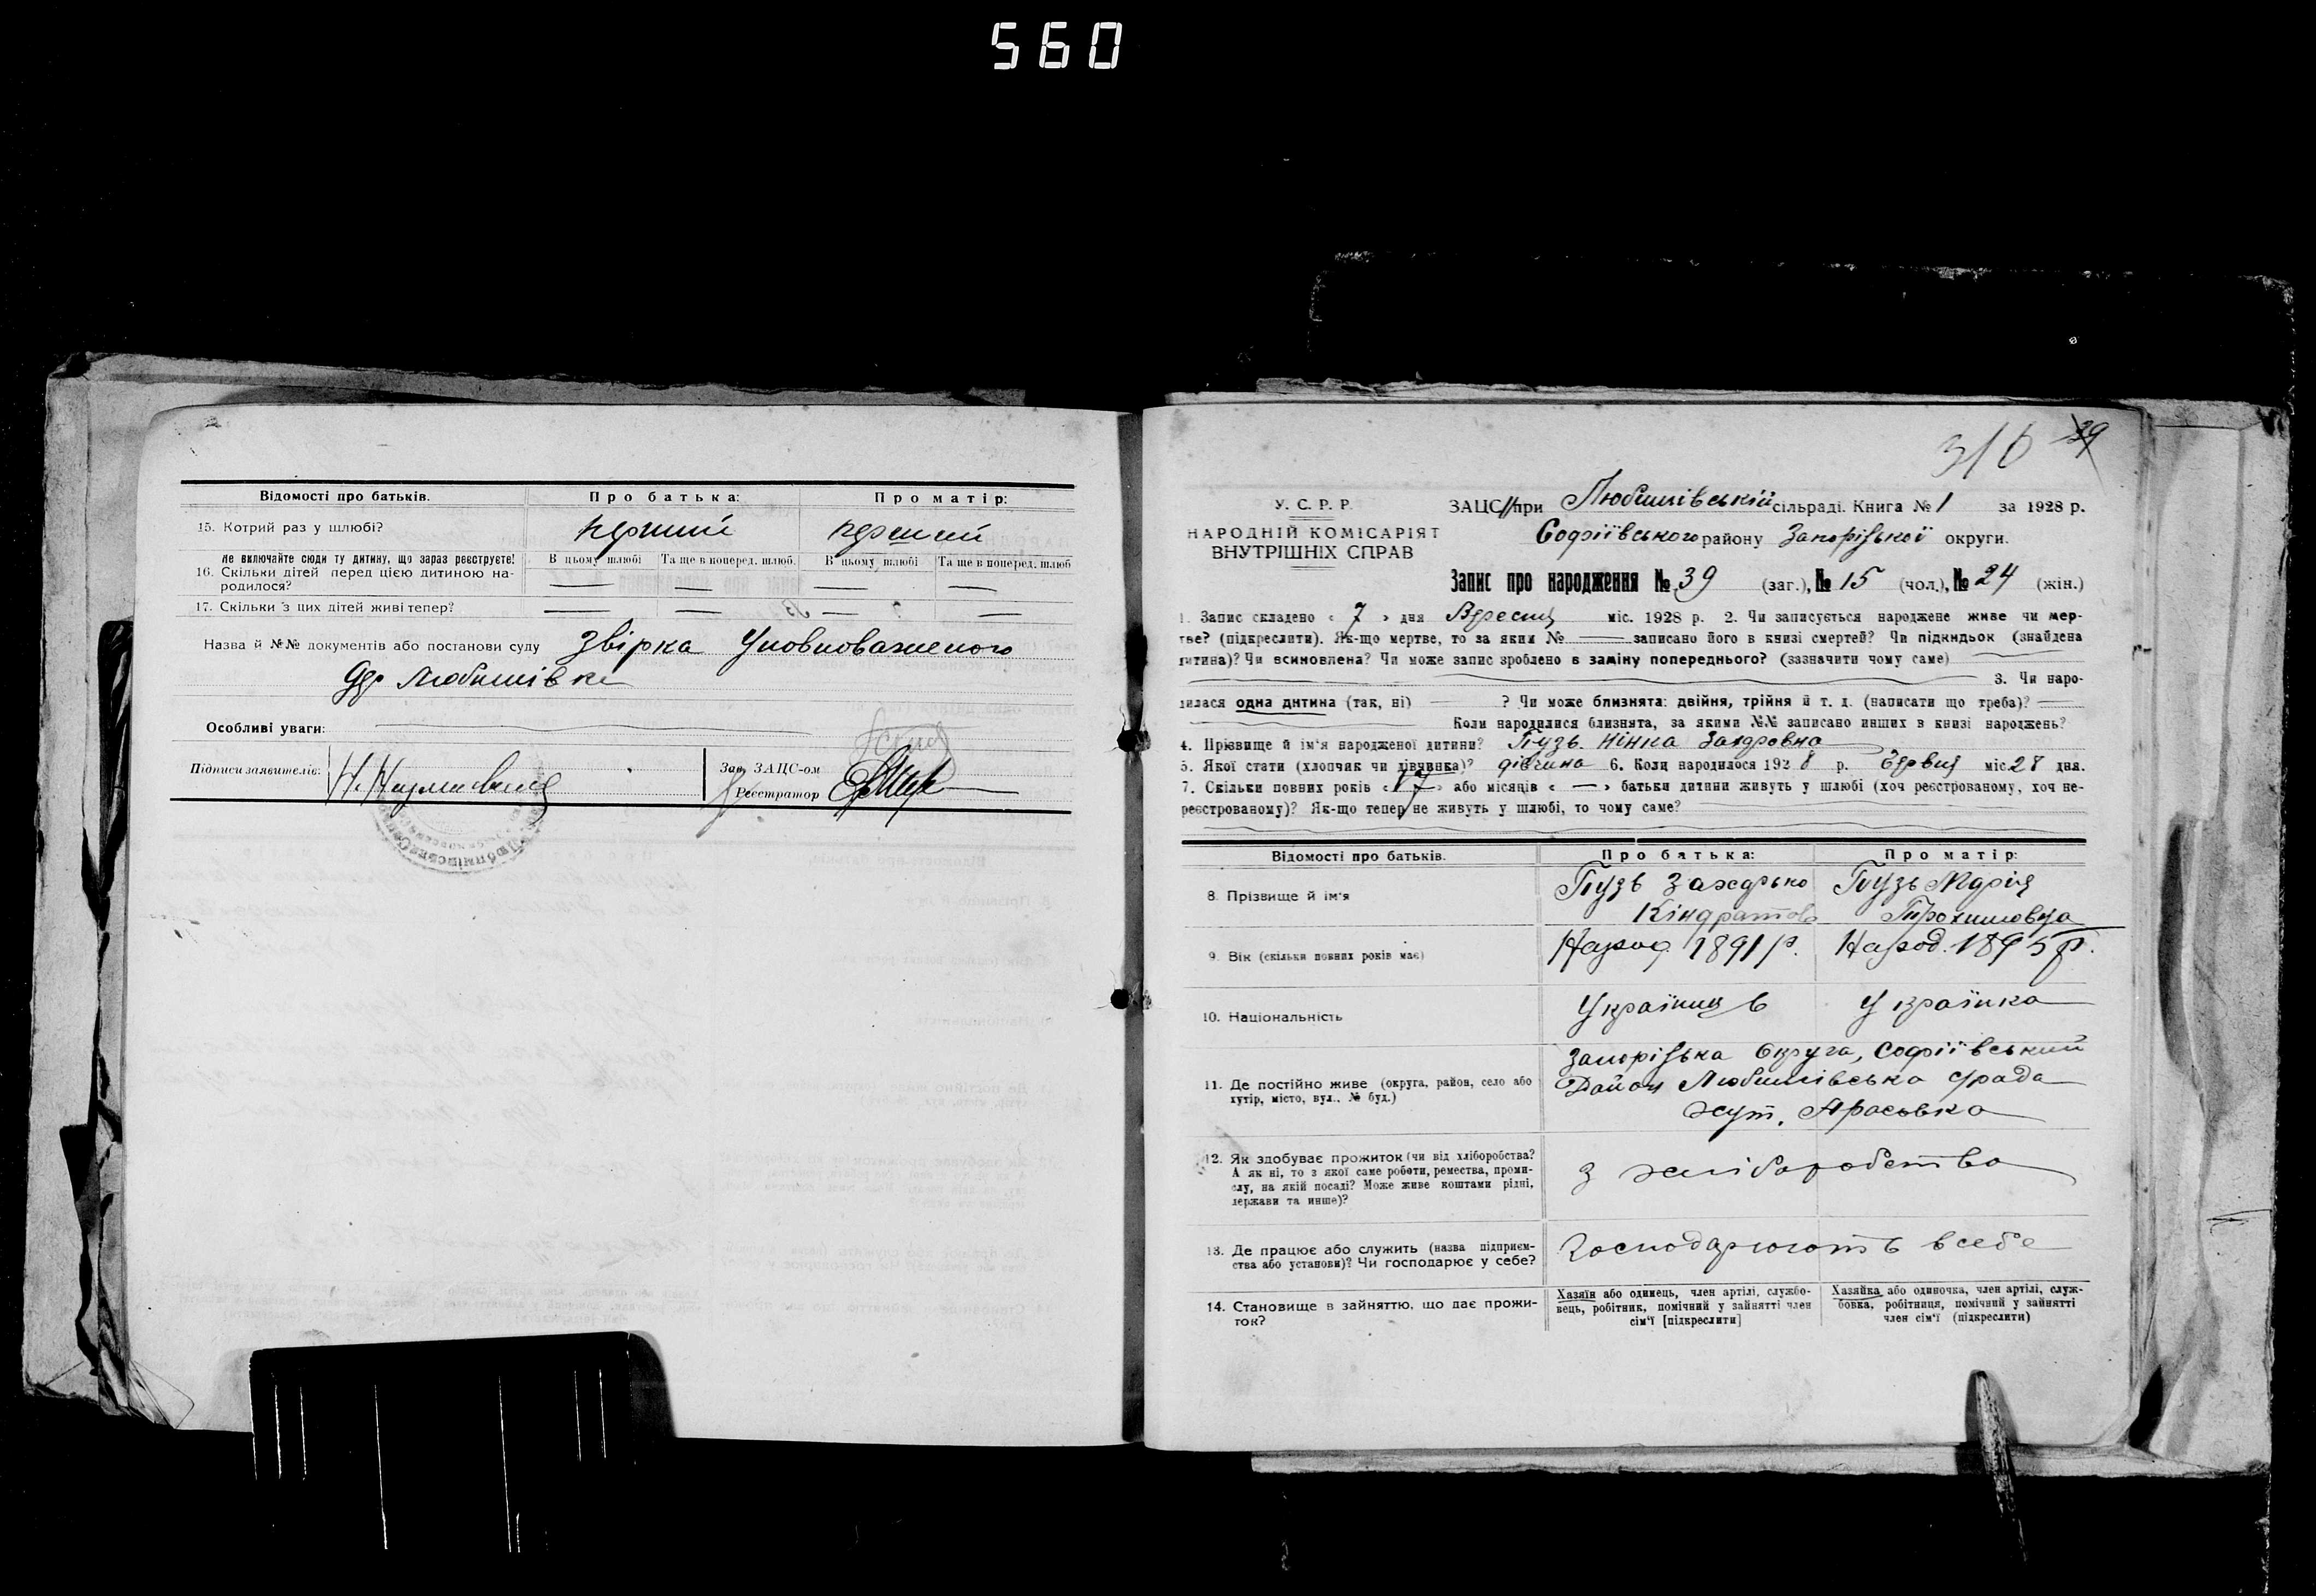 560
Відомості про батьків. Про батька: Про матір:
15. Котрий раз у шлюбі? перший перший
Не включайте сюди ту дитину, що зараз реєструєте! В цьому шлюбі Та ще в поперед. шлюб. В цьому шлюбі Та ще в поперед. шлюб
16. Скільки дітей перед цією дитиною на-
родилося? — — — —
17. Скільки з цих дітей живі тепер? — — — —
Назва й №№ документів або постанови суду Звірка Уповноваженого
Любимівки
Особливі уваги:
Підписи заявителів:
Зав. ЗАЦС-ом
Реєстратор
316 39
У. С. Р. Р.
НАРОДНІЙ КОМІСАРІЯТ
ВНУТРІШНІХ СПРАВ
ЗАЦС при Любимівській сільраді. Книга № 1 за 1928 р.
Софіївського району Запорізької округи.
Запис про народження № 39 (заг.), № 15 (чол.), № 24 (жін.)
1. Запис складено « 7 » дня Вересня міс. 1928 р. 2. Чи записується народжене живе чи мер-
тве? (підкреслити). Як-що мертве, то за яким № — записано його в книзі смертей? Чи підкидьок (знайдена
дитина)? Чи всиновлена? Чи може запис зроблено в заміну попереднього? (зазначити чому саме)
3. Чи наро-
дилася одна дитина (так, ні) — ? Чи може близнята: двійня, трійня й т. д. (написати що треба)? —
Коли народилися близнята, за якими №№ записано инших в книзі народжень?
4. Прізвище й ім'я народженої дитини? Пузь Нінка Захаровна
5. Якої статі (хлопчик чи дівчинка)? дівчина 6. Коли народилося 1928 р. Червня міс. 28 дня.
7. Скільки повних років « 17 » або місяців « — » батьки дитини живуть у шлюбі (хоч реєстрованому, хоч не-
реєстрованому)? Як-що тепер не живуть у шлюбі, то чому саме?
Відомості про батьків. Про батька: Про матір:
8. Прізвище й ім'я Пузь Захарько Кіндратов Пузь Марія Трохимовна
9. Вік (скільки повних років має) Народ. 1891 р. Народ. 1895 р.
10. Національність Українець Українка
11. Де постійно живе (округа, район, село або
хутір, місто, вул., № буд.) Запорізька Округа, Софіївський
Район Любимівська с/рада
хут.
12. Як здобуває прожиток (чи від хліборобства?
А як ні, то з якої саме роботи, ремества, проми-
слу, на якій посаді? Може живе коштами рідні,
держави та инше)? З хліборобства
13. Де працює або служить (назва підприєм-
ства або установи)? Чи господарює у себе? Господарюють в себе
14. Становище в зайняттю, що дає прожи-
ток?
Хазяїн або одинець, член артілі, службо-
вець, робітник, помічний у зайнятті член
сім'ї [підкреслити]
Хазяйка або одиночка, член артілі, служ-
бовка, робітниця, помічний у зайнятті
член сім'ї (підкреслити)